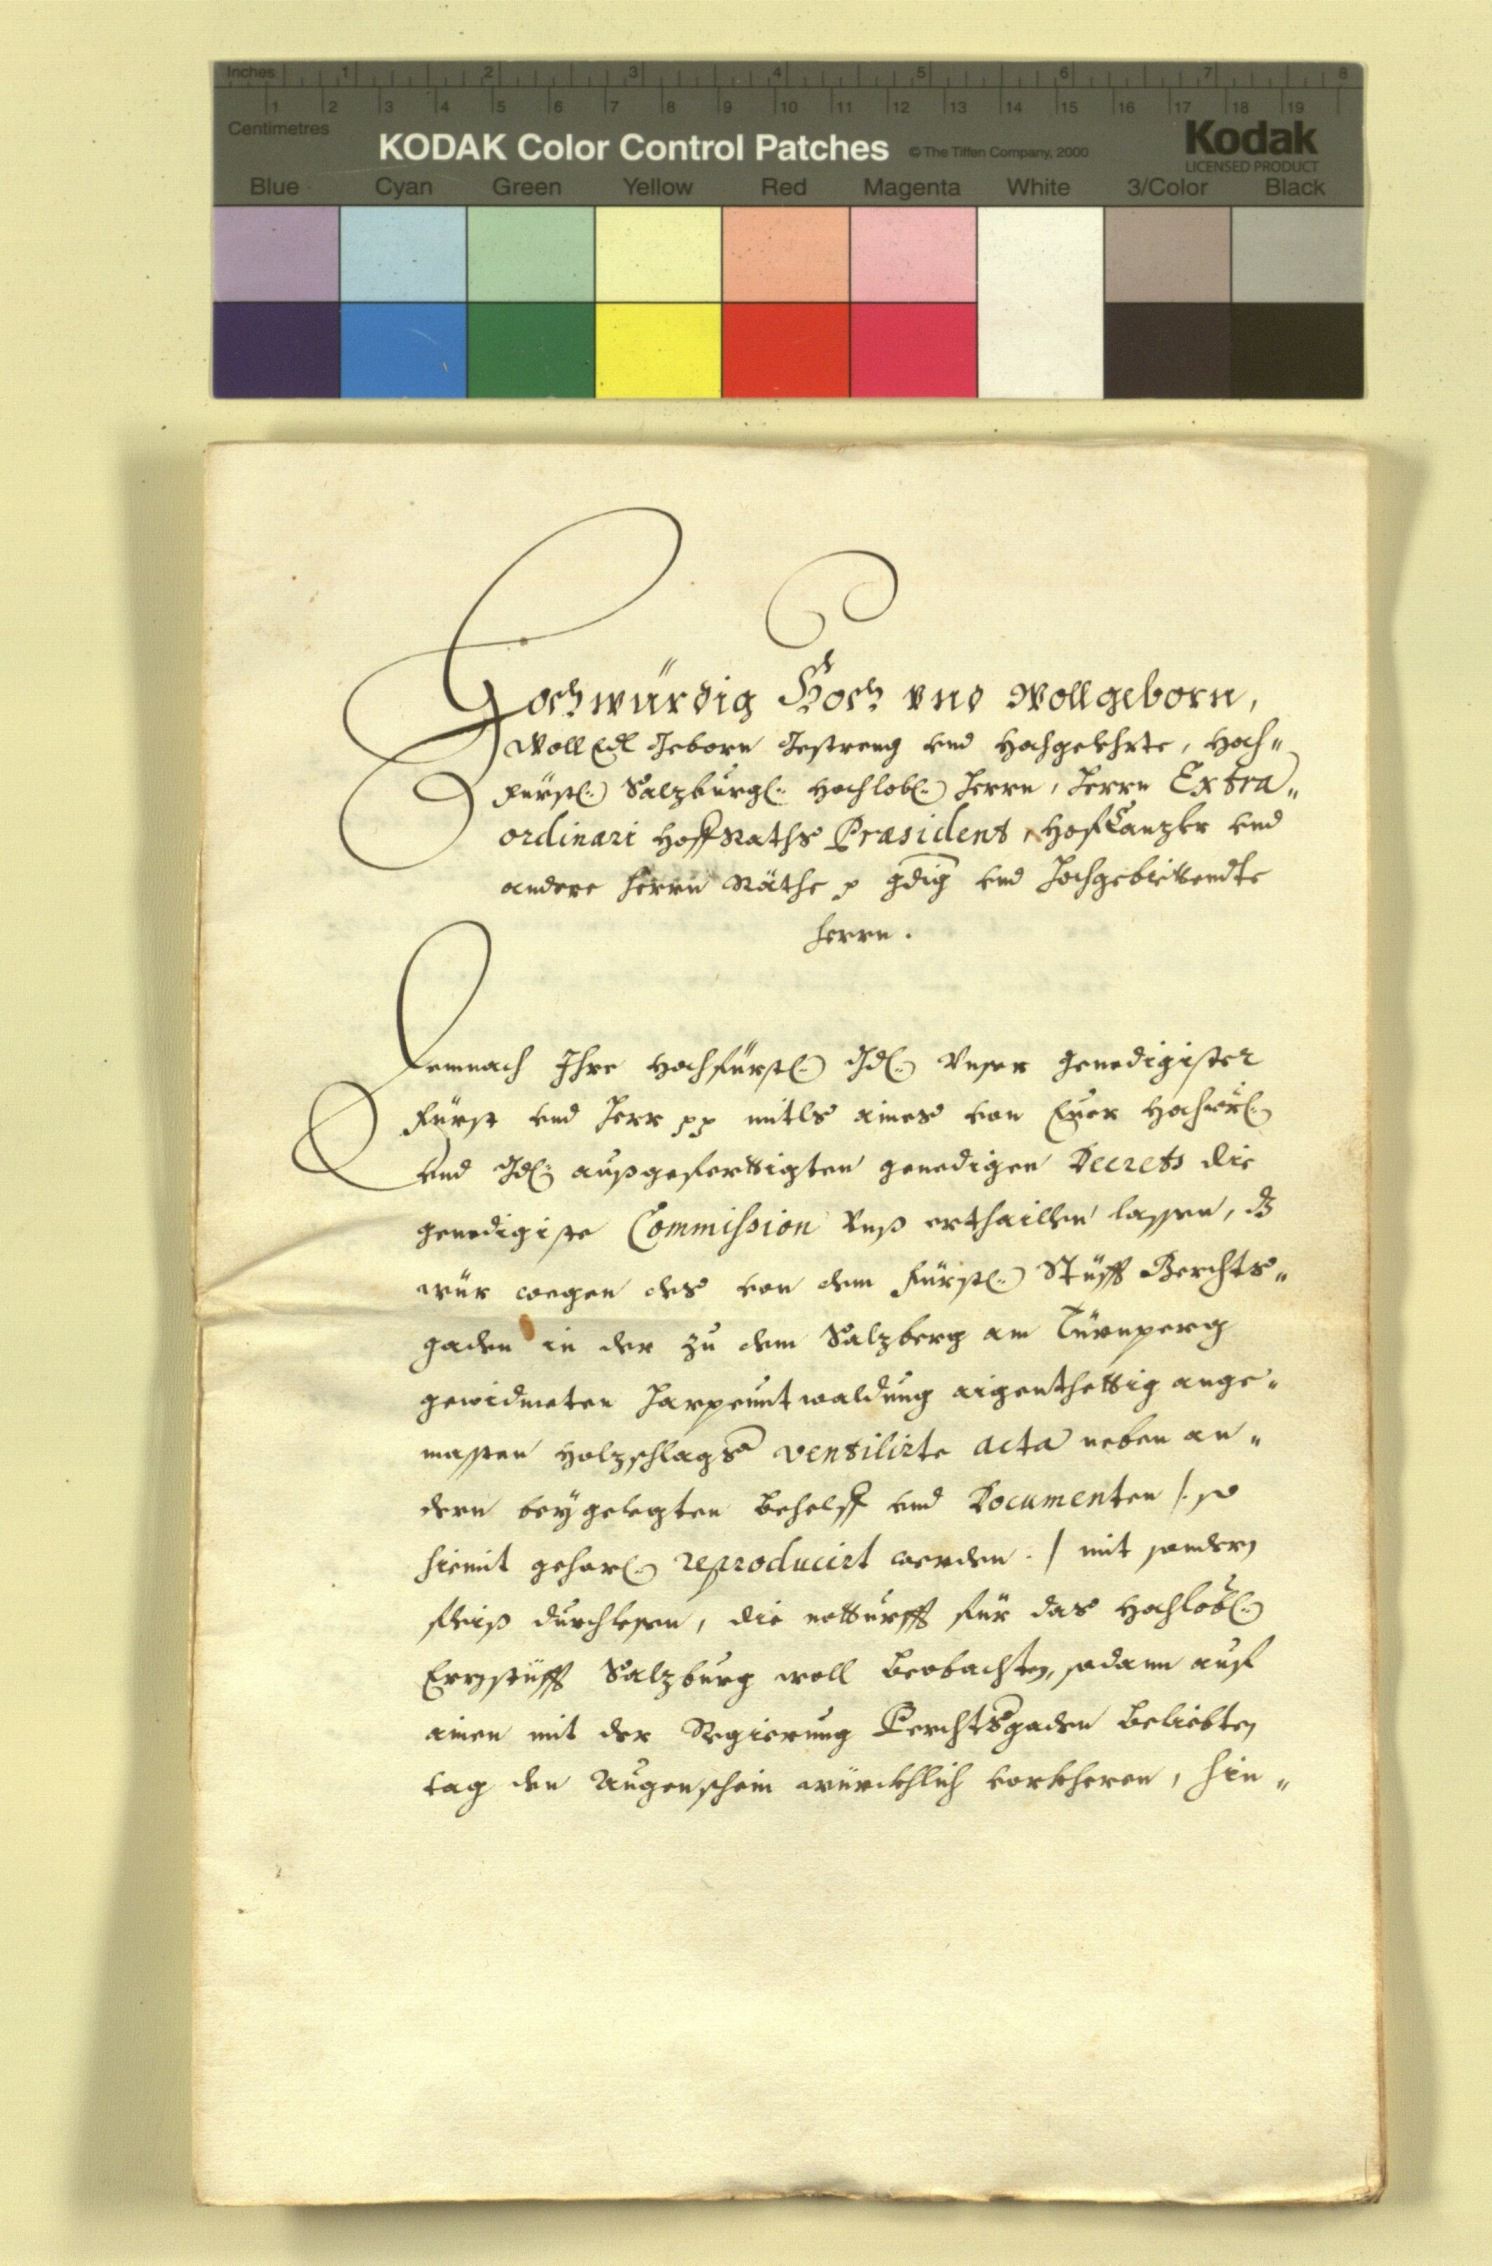 Inches 1 2 3 4 5 6 7 8
1 2 3 4 5 6 7 8 9 10 11 12 13 14 15 16 17 18 19
Centimetres
KODAK Color Control Patches © The Tiffen Company, 2000 Kodak
LICENSED PRODUCT
Blue Cyan Green Yellow Red Magenta White 3/Color Black
Hochwürdig Hoch vnd Wollgeborn,
Woll Edl Geborn Gestreng vnd Hochgelehrte, Hoch„
Fürstl: Salzburgl: Hochlobl: Herrn, Herrn Extra„
ordinari Hoff Raths Præsident, Hof Canzler vnd
andere Herrn Räthe p gdig vnd Hochgebiettendte
Herrn.
Demnach Ihre Hochfürstl: Gdl: Vnser Genedigister
Fürst vnd Herr pp mitls aines von Euer Hochwürl:
vnd Gdl: außgeferttigten genedigen Decrets die
genedigiste Commission Vnß erthaillen lassen, dz
wür wegen des von dem Fürstl: Stüfft Berchts„
gaden in der zu dem Salzberg am Türnperg
gewidmeten Harpeunt waldung aigenthettig ange„
massten Holzschlags ventilirte acta neben an„
dern beygelegten Behelff vnd Documenten /: so
hiemit gehorl: reproducirt werden :/ mit sondern
fleiß durchlesen, die notturfft für das Hochlöbl:
Erzstüfft Salzburg woll beobachten, sodann auf
ainen mit der Regierung Perchtsgaden beliebten
tag den Augenschein würckhlich vorkheren, hin„